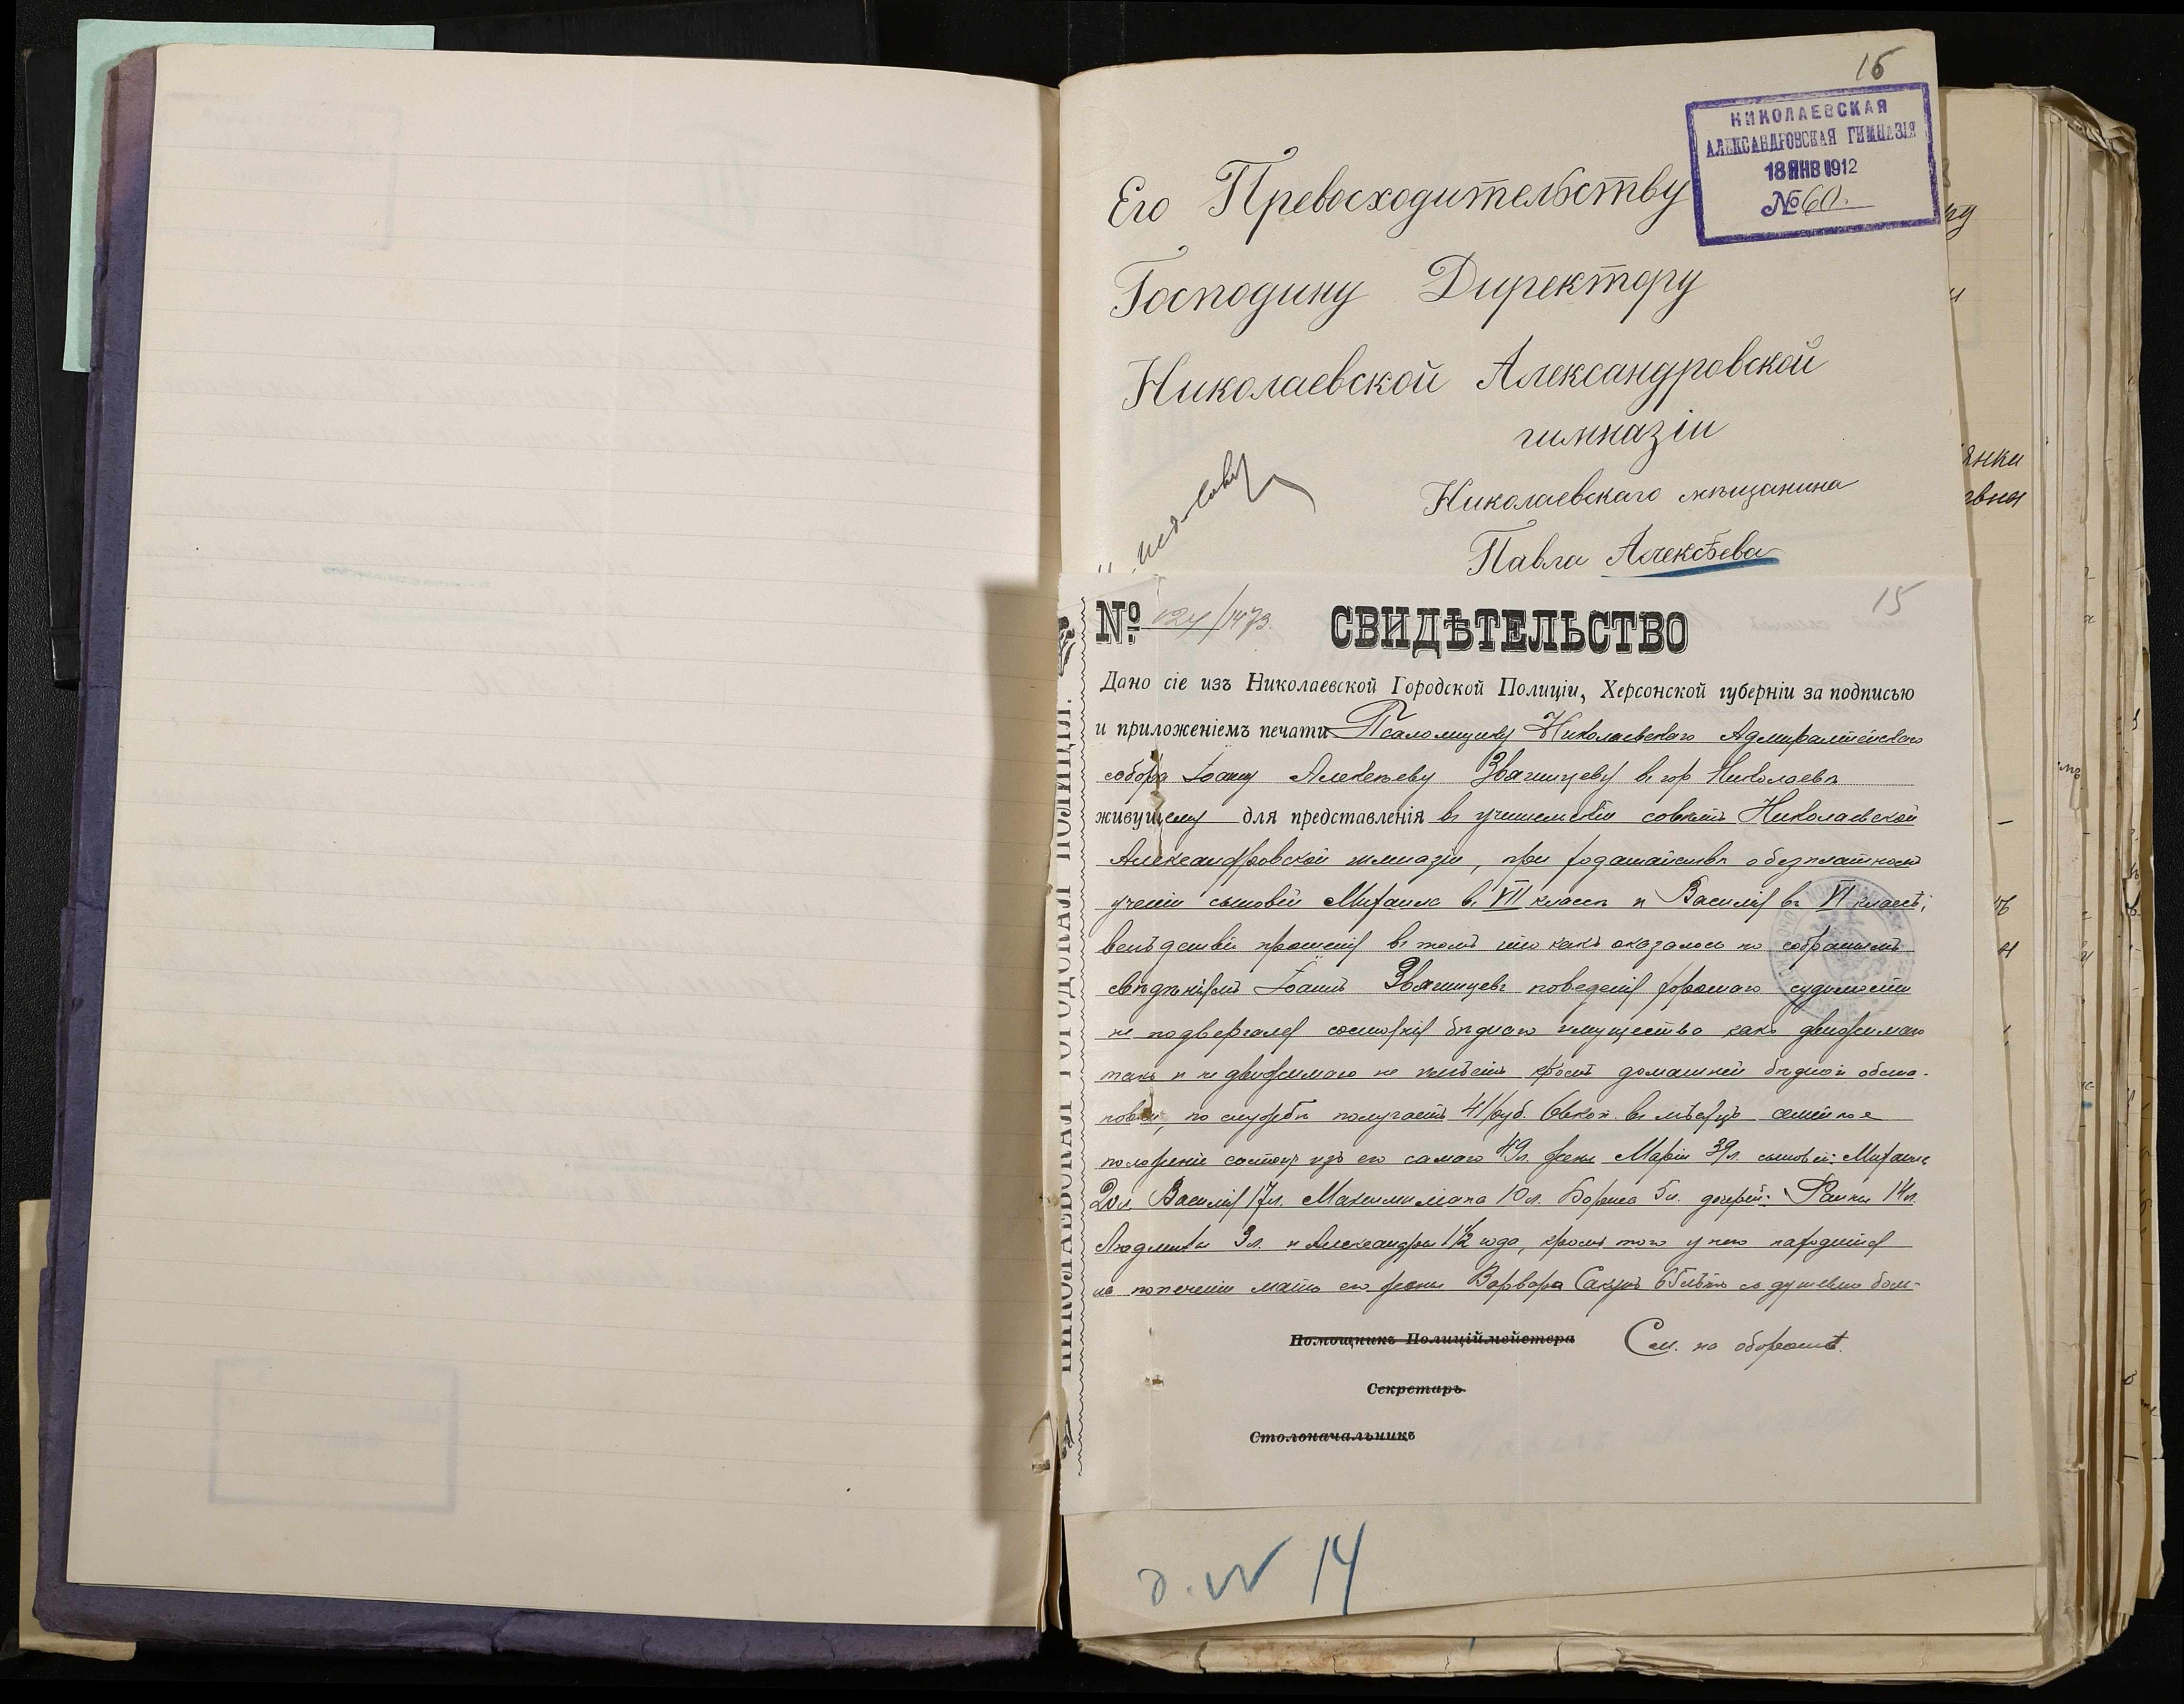 16
НИКОЛАЕВСКАЯ
АЛЕКСАНДРОВСКАЯ ГИМНАЗІЯ
18 ЯНВ 1912
№ 60.
Его Превосходительству
Господину Директору
Николаевской Александровской
гимназіи
Николаевскаго мѣщанина
Павла Алексѣева
15
№ 124/1473.
СВИДѢТЕЛЬСТВО
Дано сіе изъ Николаевской Городской Полиціи, Херсонской губерніи за подписью
и приложеніемъ печати Псаломщику Николаевскаго Адмиралтейскаго
собора Іоанну Алексѣеву Звагинцеву въ гор Николаевѣ
живущему для представленія въ училищный совѣтъ Николаевской
Александровской гимназіи, при ходатайствѣ о безплатномъ
ученіи сыновей Михаила въ VII классѣ и Василія въ VI классѣ,
вслѣдствіе прошенія въ томъ что какъ оказалось по собраннымъ
свѣдѣніямъ Іоаннъ Звагинцевъ поведенія хорошаго судимости
не подвергался состоянія бѣднаго имущества какъ движимаго
такъ и не движимаго не имѣетъ кромѣ домашней бѣдной обста-
новки, по службѣ получаетъ 41 руб. 66 коп. въ мѣсяцъ семейное
положеніе состоитъ изъ его самаго 49 л. жены Маріи 39 л. сыновей: Михаила
20 л. Василія 17 л. Максимиліана 10 л. Бориса 5 л. дочерей: Раисы 14 л.
Людмилы 3 л. и Александры 1 1/2 года, кромѣ того у него находится
на попеченіи мать его жены Варвара 65 лѣтъ душевно боль-
Помощникъ Полиціймейстера
См. на оборотѣ.
Секретарь
Столоначальникъ
НИКОЛАЕВСКАЯ ГОРОДСКАЯ ПОЛИЦІЯ.
14